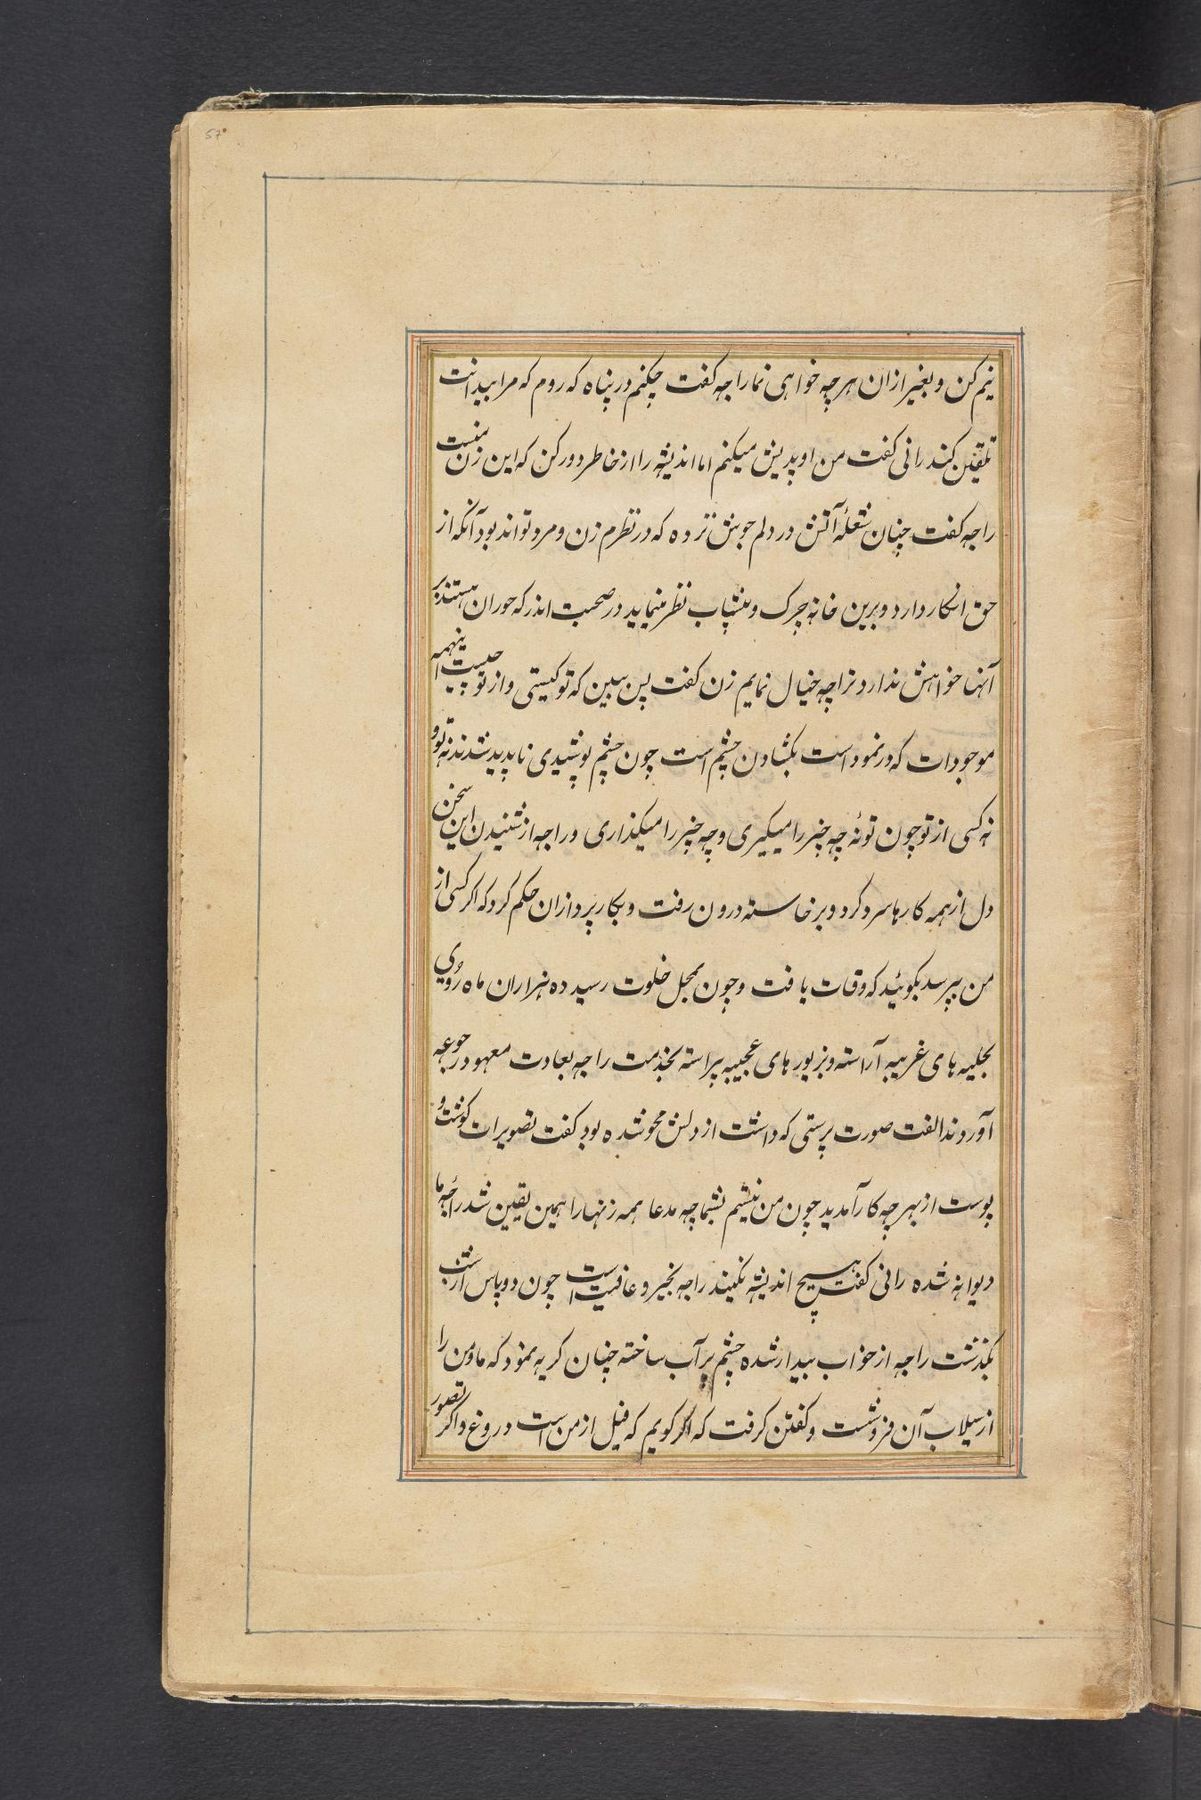 57
نیم کن و بغیر ازان هر چه خواهی نما راجه گفت چکنم در پناه که روم که مرا بیدانت
تلقین کند رانی گفت من او پدیش میکنم اما اندیشه را از خاطر دور کن که این زن نیست
راجه گفت چنان شعلهٔ آتش در دلم جوش زده که در نظرم زن و مرد تواند بود آنکه از
حق انکار دارد و برین خانه چرک و پیشاب نظر مینماید در صحبت اندر که حوران هستند بر
آنها خواهش ندارد ترا چه خیال نمایم زن گفت پس ببین که تو کیستی و از تو چیست اینهمه
موجودات که در نمود است بکشادن چشم است چون چشم پوشیدی ناپدید شدند نه تو و
نه کسی از تو چون توئه چه چیز را میگیری و چه چیز را میگذاری و راجه از شنیدن این سخن
دل از همه کارها سرد گرد و برخاسته درون رفت و بکار پردازان حکم کرد که اگر کسی از
من بپرسد بگوئید که وقات یافت و چون بمحل خلوت رسید ده هزاران ماه روی
بحلیه های غریبه آراسته و بزیورهای عجیبه پیراسته بخدمت راجه بعادت معهود رجوعه
آوردند الفت صورت پرستی که داشت از دلش محو شده بود گفت تصویرات گوشت و
پوست از بهر چه کار آمدید چون من نیستم بشما چه مدعا همه زنها را همین یقین شد راجه ما
دیوانه شده رانی گفت هیچ اندیشه نکنید راجه بخیر و عافیت است چون دو پاس از شب
بگذشت راجه از خواب بیدار شده چشم پر آب ساخته چنان گریه نمود که ما و من را
از سیلاب آن فرو شست و گفتن گرفت که اگر گویم که فیل از من است دروغ و اگر تصور